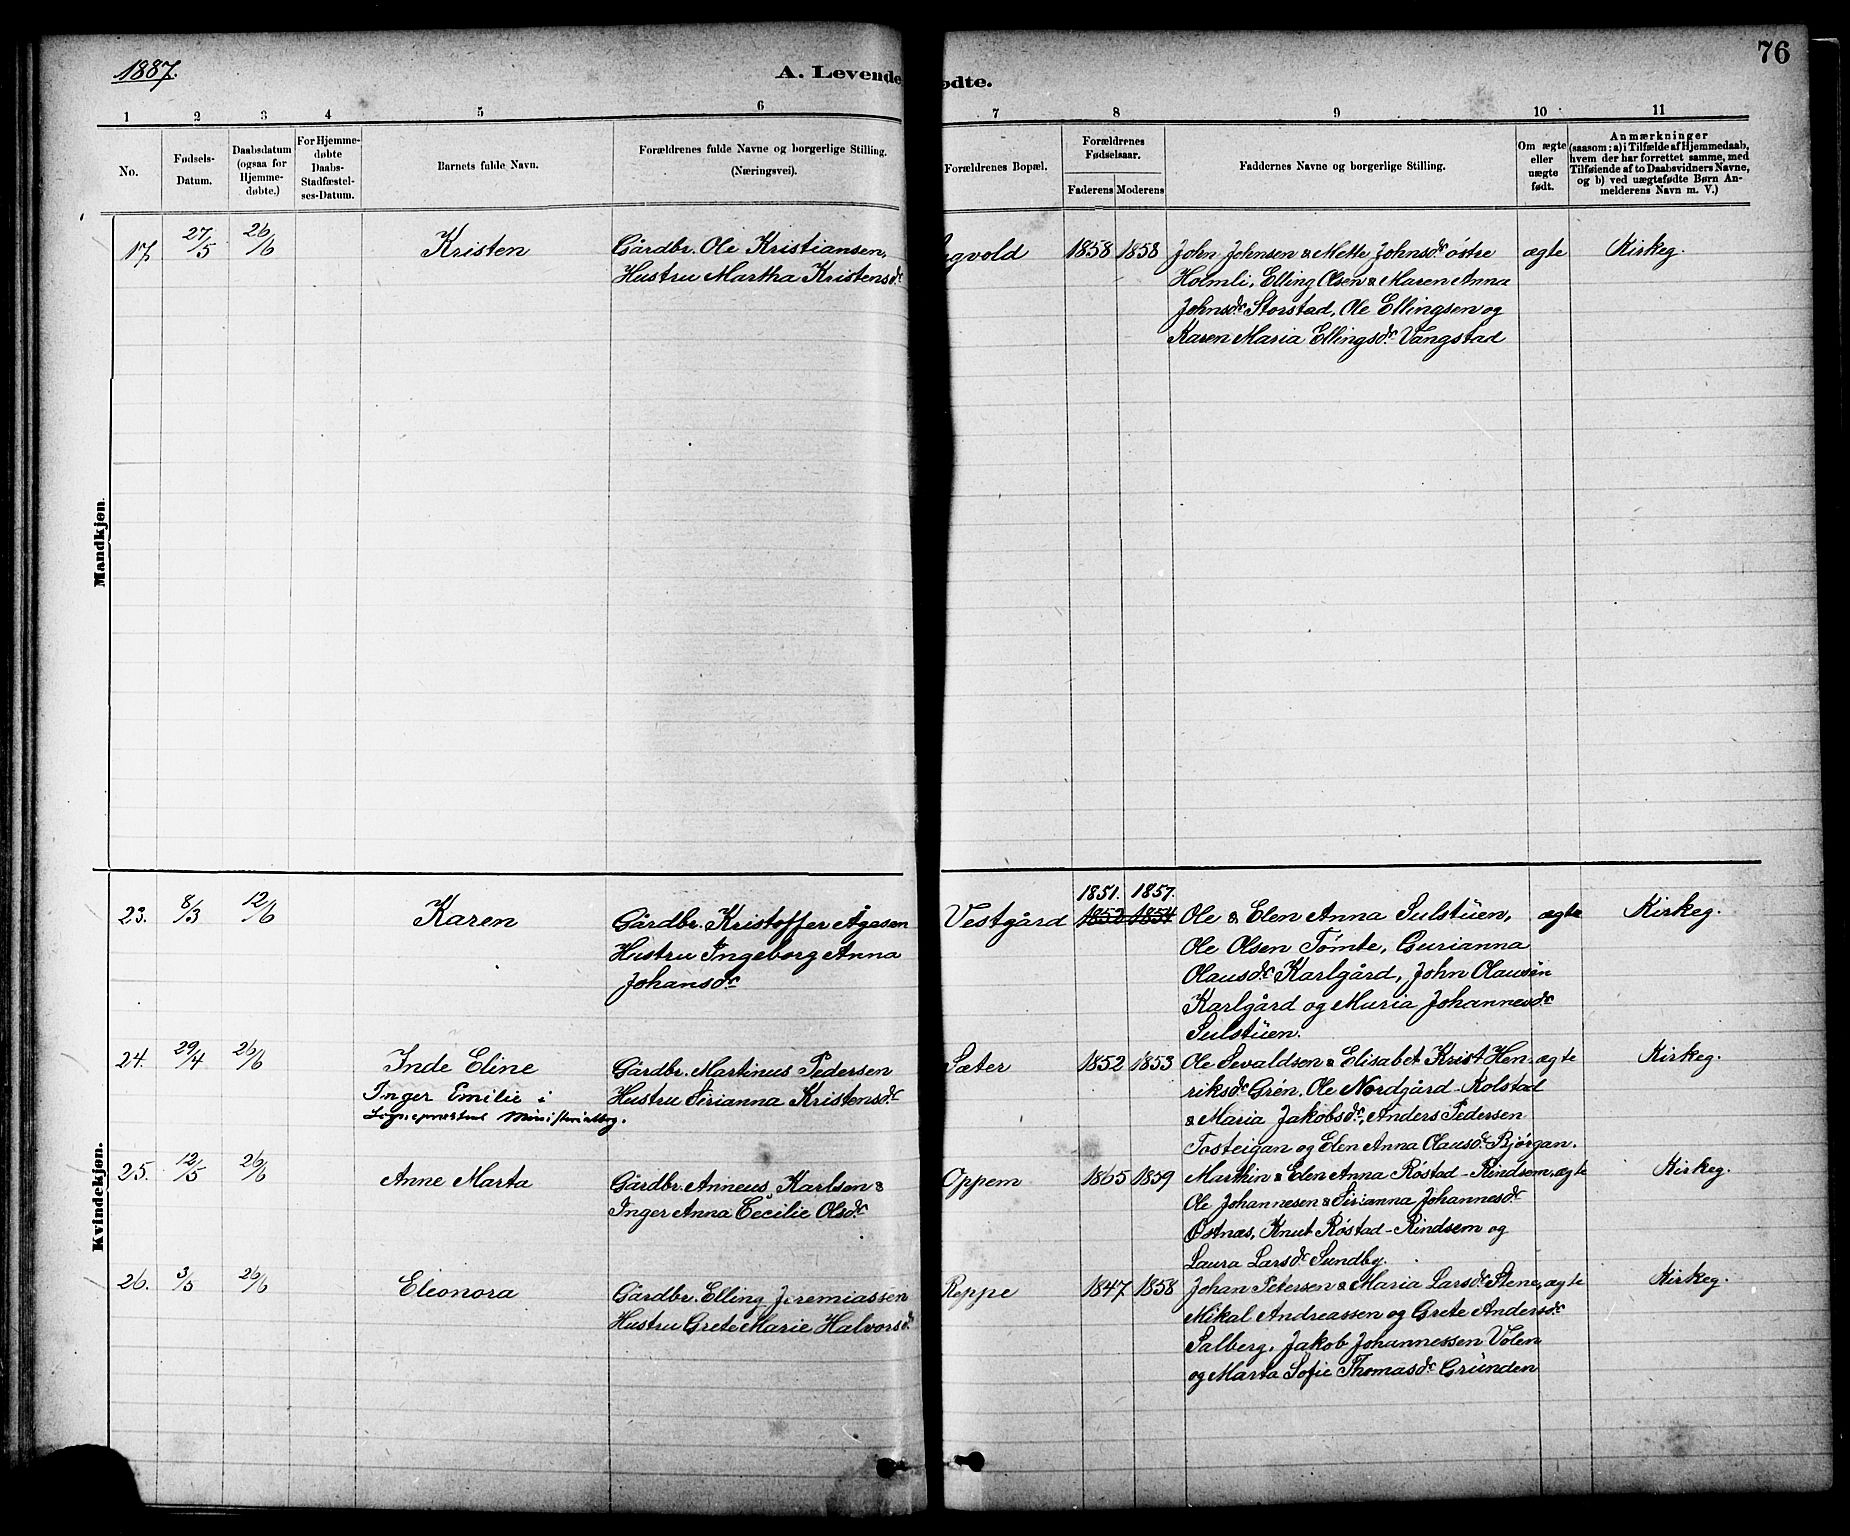 1887.
A. Levende ødte.
76
1 2 3 4 5 6 7 8 9 10 11
No.
Fødsels-
Datum.
Daabsdatum
(ogsaa for
Hjemme-
døbte.)
For Hjemme-
døbte
Daabs-
Stadfæstel-
ses-Datum.
Barnets fulde Navn.
Forældrenes fulde Navne og borgerlige Stilling.
(Næringsvei).
Forældrenes Bopæl.
Forældrenes
Fødselsaar.
Faderens Moderens
Faddernes Navne og borgerlige Stilling.
Om ægte
eller
uægte
født.
Anmærkninger
(saasom: a) i Tilfælde af Hjemmedaab,
hvem der har forrettet samme, med
Tilføiende af to Daabsvidners Navne,
og b) ved uægtefødte Børn An-
melderens Navn m. V.)
Mandkjøn.
17. 27/5 26/6 Kristen
Gårdbr. Ole Kristiansen,
Hustru Martha Kristensdr
gvold 1858 1858
John Johnsen & Mette Johnsdr østre
Holmli, Elling Olsen & Maren Anna
Johnsdr Storstad, Ole Ellingsen og
Karen Maria Ellingsdr Vangstad
ægte Kirkeg.
Kvindekjøn.
23. 8/3 12/6 Karen
Gårdbr. Kristoffer Ågesen
Hustru Ingeborg Anna
Johansdr
Vestgård
1851. 1857.
1852 1854
Ole & Elen Anna Sulstüen,
Ole Olsen Tømte, Gurianna
Olausdr Karlgård, John Olausen
Karlgård og Maria Johannesdr
Sulstüen.
ægte Kirkeg.
24. 29/4 26/6 Inde Eline
Inger Emilie i
Sognepræstens Ministerialbog.
Gårdbr. Martinus Pedersen
Hustru Sirianna Kristensdr
Sæter 1852 1853
Ole Sevaldsen & Elisabet Krist. Hen-
riksdr Grén. Ole Nordgård-Kolstad
& Maria Jakobsdr, Anders Pedersen
Tosteigan og Elen Anna Olausdr Bjørgan.
ægte Kirkeg.
25. 12/5 26/6 Anne Marta
Gårdbr. Anneus Karlsen &
Inger Anna Cecilie Olsdr
Oppem 1865 1859
Marthin & Elen Anna Røstad-Rindsem,
Ole Johannesen & Sirianna Johannesdr
Østnæs, Knut Røstad-Rindsem og
Laura Larsdr Sundby.
ægte Kirkeg.
26. 3/5 26/6 Eleonora
Gårdbr. Elling Jeremiassen
Hustru Grete Marie Halvorsdr
Reppe 1847 1858
Johan Petersen & Maria Larsdr Stene,
Mikal Andreassen og Grete Andersdr
Salberg, Jakob Johannessen Volen
og Marta Sofie Thomasdr Gründen
ægte Kirkeg.